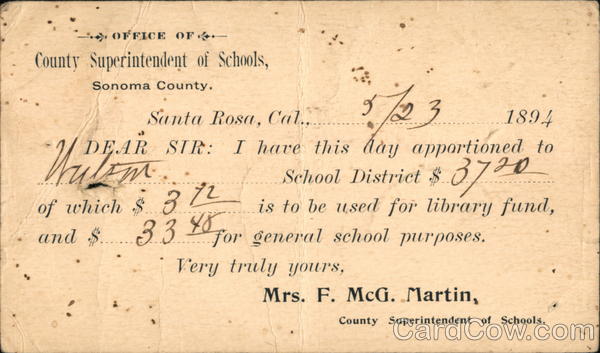 OFFICE OF
County Superintendent of Schools,
Sonoma County.
Santa Rosa, Cal., 5/23 1894
DEAR SIR: I have this day apportioned to
Wilson School District $ 37 20
of which $ 3 72 is to be used for library fund,
and $ 33 48 for general school purposes.
Very truly yours,
Mrs. F. McG. Martin,
County Superintendent of Schools.
CardCow.com